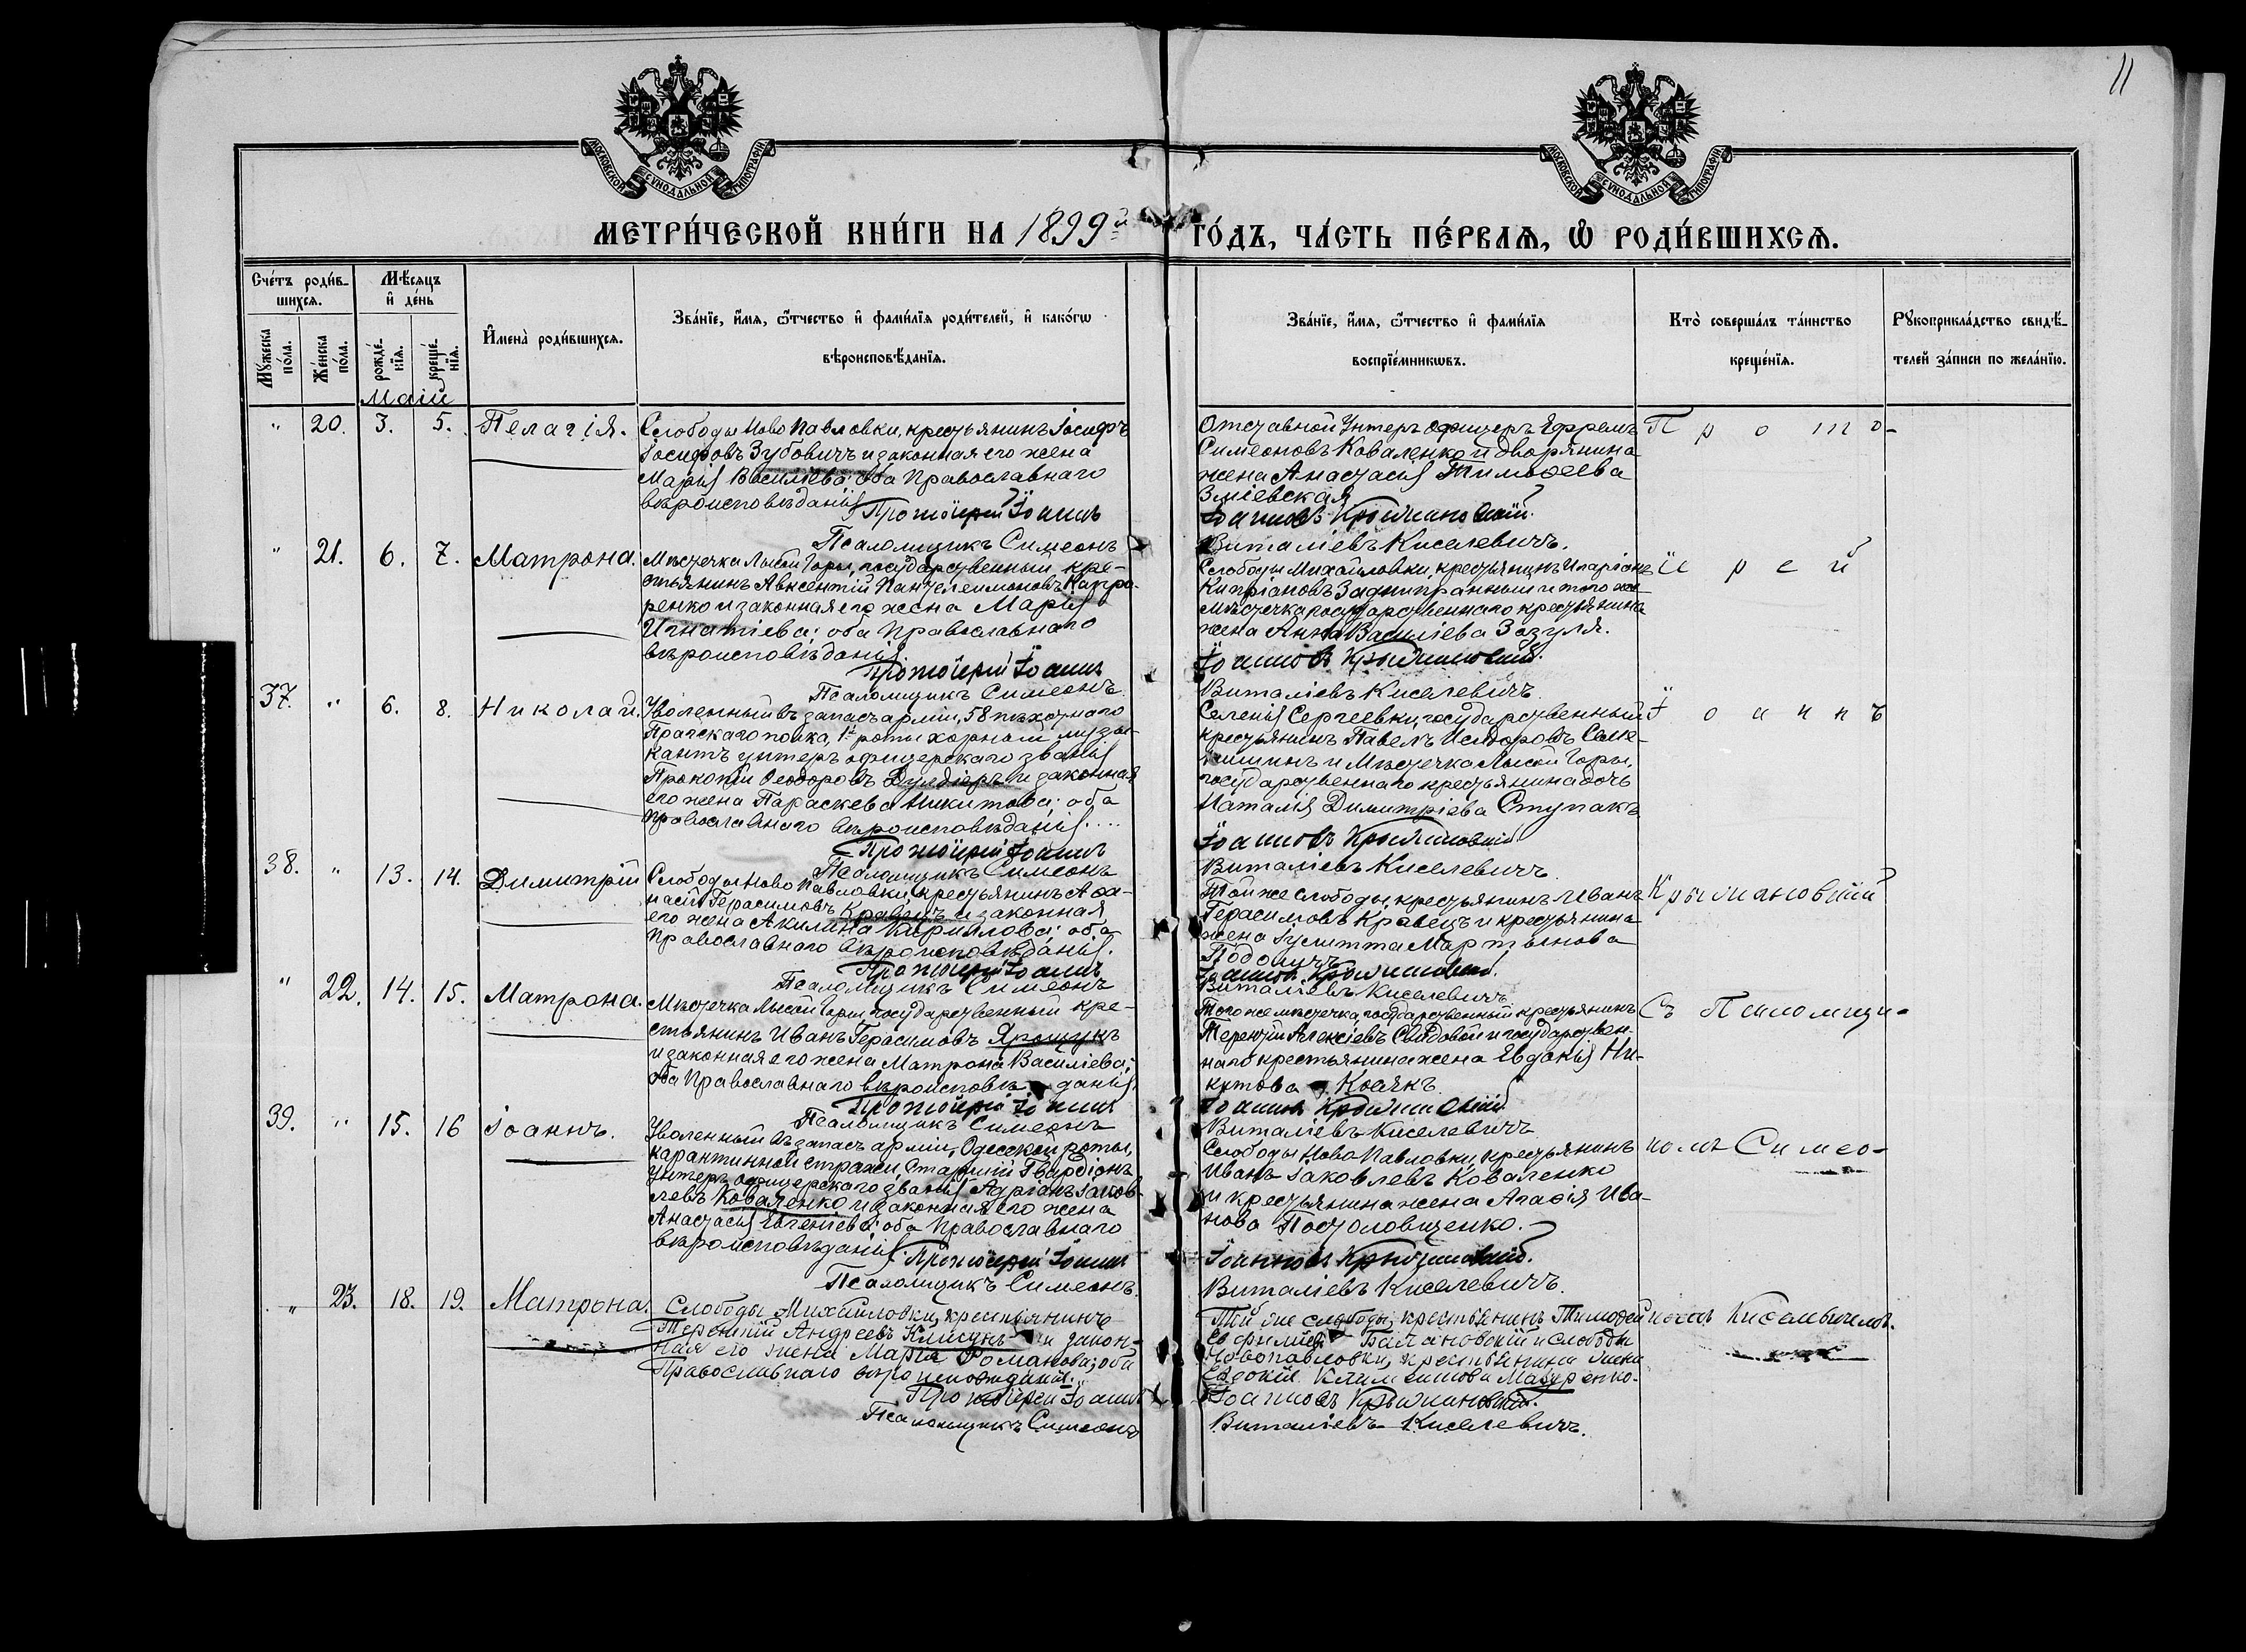 11
МОСКОВСКОЙ СУНОДАЛЬНОЙ ТИПОГРАФІИ
МОСКОВСКОЙ СУНОДАЛЬНОЙ ТИПОГРАФІИ
МЕТРИ́ЧЕСКОЙ КНИ́ГИ НА 1899й ГО́ДЪ, ЧА́СТЬ ПЕ́РВАѦ, Ѡ҆ РОДИ́ВШИХСѦ.
Сче́тъ роди́в-
шихсѧ.
Мꙋ́жеска по́ла.
Же́нска по́ла.
Мѣ́сѧцъ
и҆ де́нь
рожде́-нїѧ.
креще́-нїѧ.
Маій
И҆мена̀ роди́вшихсѧ.
Зва́нїе, и҆́мѧ, ѻ҆́тчество и҆ фами́лїѧ роди́телей, и҆ како́гѡ
вѣроисповѣ́данїѧ.
Зва́нїе, и҆́мѧ, ѻ҆́тчество и҆ фами́лїѧ
воспрїе́мникѡвъ.
Кто̀ соверша́лъ та́инство
креще́нїѧ.
Рꙋкоприкла́дство свидѣ́-
телей за́писи по жела́нїю.
" 20. 3. 5. Пелагія.
Слободы Ново Павловки, крестьянинъ Іосифъ
Іосифовъ Зубовичъ и законная его жена
Марія Василіева; оба Православнаго
вѣроисповѣданія
Протоіерей Іоаннъ
Псаломщикъ Симеонъ
Отставной Унтеръ офицеръ Ефремъ
Симеоновъ Коваленко и дворянина
жена Анастасія Тимоѳеева
Зміевская
Іоанновъ Крыжановскій.
Виталіевъ Киселевичъ.
" 21. 6. 7. Матрона.
Мѣстечка Лысой Горы, государственный кре-
стьянинъ Авксентій Пантелеимоновъ Капра-
ренко и законная его жена Марія
Игнатіева; оба Православнаго
вѣроисповѣданія.
Протоіерей Іоаннъ
Псаломщикъ Симеонъ
Слободы Михайловки, крестьянинъ Иларіонъ
Кипріановъ Заднипранный и того же
мѣстечка государственнаго крестьянина
жена Анна Василіева Зозуля.
Іоанновъ Крыжановскій.
Виталіевъ Киселевичъ
37. " 6. 8. Николай.
Уволенный въ запасъ арміи, 58 пѣхотнаго
Прагскаго полка, 1й роты хорный музы-
кантъ унтеръ офицерскаго званія
Прокопій Ѳеодоровъ и законная
его жена Параскева Никитова; оба
православнаго вѣроисповѣданія....
Протоіерей Іоаннъ
Псаломщикъ Симеонъ
Селенія Сергеевки, государственный
крестьянинъ Павелъ Исидоровъ
и Мѣстечка Лысой Горы,
государственнаго крестьянина дочь
Наталія Димитріева Ступакъ
Іоанновъ Крыжановскій
Виталіевъ Киселевичъ.
38. " 13. 14. Димитрій
Слободы Ново Павловки, крестьянинъ Аѳа-
насій Герасимовъ Кравецъ и законная
его жена Акилина Кириллова; оба
Православнаго вѣроисповѣданія.
Протоіерей Іоаннъ
Псаломщикъ Симеонъ
Той же слободы, крестьянинъ Иванъ
Герасимовъ Кравецъ и крестьянина
жена Іулитта Мартынова
Іоанновъ Крыжановскій.
Виталіевъ Киселевичъ
" 22. 14. 15. Матрона.
Мѣстечка Лысой Горы, государственный кре-
стьянинъ Иванъ Герасимовъ Ярощукъ
и законная его жена Матрона Василіева;
оба Православнаго вѣроисповѣданія.
Протоіерей Іоаннъ
Псаломщикъ Симеонъ
Того же мѣстечка, государственный крестьянинъ
Терентій Алексіевъ и государствен-
наго крестьянина жена Евдокія Ни-
китова Косякъ
Іоанновъ Крыжановскій
Виталіевъ Киселевичъ
39. " 15. 16 Іоаннъ.
Уволенный въ запасъ арміи, Одесской роты,
карантинной стражи Старшій Гвардіонъ
Унтеръ офицерскаго званія Адріанъ Іаков-
левъ Коваленко и законная его жена
Анастасія Евгеніева; оба Православнаго
вѣроисповѣданія.
Протоіерей Іоаннъ
Псаломщикъ Симеонъ.
Слободы Ново Павловки, крестьянинъ
Иванъ Іаковлевъ Коваленко
и крестьянина жена Агаѳія Ива-
нова Постоловщенко.
Іоанновъ Крыжановскій.
Виталіевъ Киселевичъ.
" 23. 18. 19. Матрона.
Слободы Михайловки, крестьянинъ
Терентій Андреевъ и закон-
ная его жена Марія Романова; оба
Православнаго вѣроисповѣданія.
Протоіерей Іоаннъ
Псаломщикъ Симеонъ
Той же слободы, крестьянинъ Тимоѳей
Балановскій и слободы
Новопавловки, крестьянина жена
Евдокія Климентова Мазуренко.
Іоанновъ Крыжановскій.
Виталіевъ Киселевичъ.
Прото-
іерей
Іоаннъ
Крыжановскій
съ Псаломщи-
комъ Симео-
номъ Киселевичемъ.